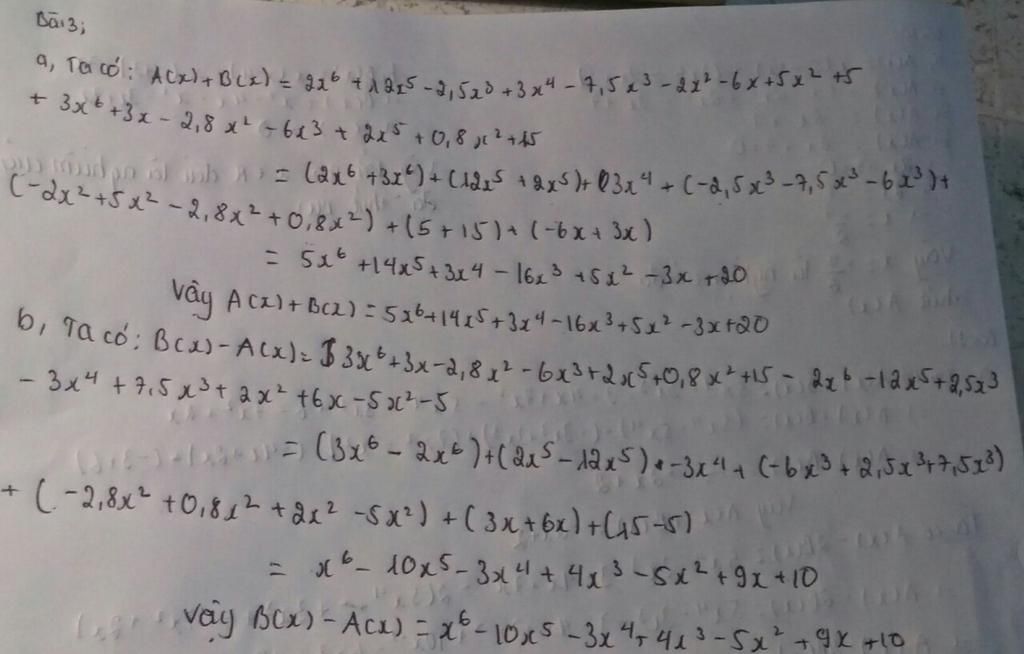 Bài 3;
a, Ta có: A(x) + B(x) = 2x⁶ + 12x⁵ - 2,5x³ + 3x⁴ - 7,5x³ - 2x² - 6x + 5x² + 5
+ 3x⁶ + 3x - 2,8x² - 6x³ + 2x⁵ + 0,8x² + 15
= (2x⁶ + 3x⁶) + (12x⁵ + 2x⁵) + 3x⁴ + (-2,5x³ - 7,5x³ - 6x³) +
(-2x² + 5x² - 2,8x² + 0,8x²) + (5 + 15) + (-6x + 3x)
= 5x⁶ + 14x⁵ + 3x⁴ - 16x³ + 5x² - 3x + 20
Vậy A(x) + B(x) = 5x⁶ + 14x⁵ + 3x⁴ - 16x³ + 5x² - 3x + 20
b, Ta có: B(x) - A(x) = 3x⁶ + 3x - 2,8x² - 6x³ + 2x⁵ + 0,8x² + 15 - 2x⁶ - 12x⁵ + 2,5x³
- 3x⁴ + 7,5x³ + 2x² + 6x - 5x² - 5
= (3x⁶ - 2x⁶) + (2x⁵ - 12x⁵) - 3x⁴ + (-6x³ + 2,5x³ + 7,5x³)
+ (-2,8x² + 0,8x² + 2x² - 5x²) + (3x + 6x) + (15 - 5)
= x⁶ - 10x⁵ - 3x⁴ + 4x³ - 5x² + 9x + 10
Vậy B(x) - A(x) = x⁶ - 10x⁵ - 3x⁴ + 4x³ - 5x² + 9x + 10